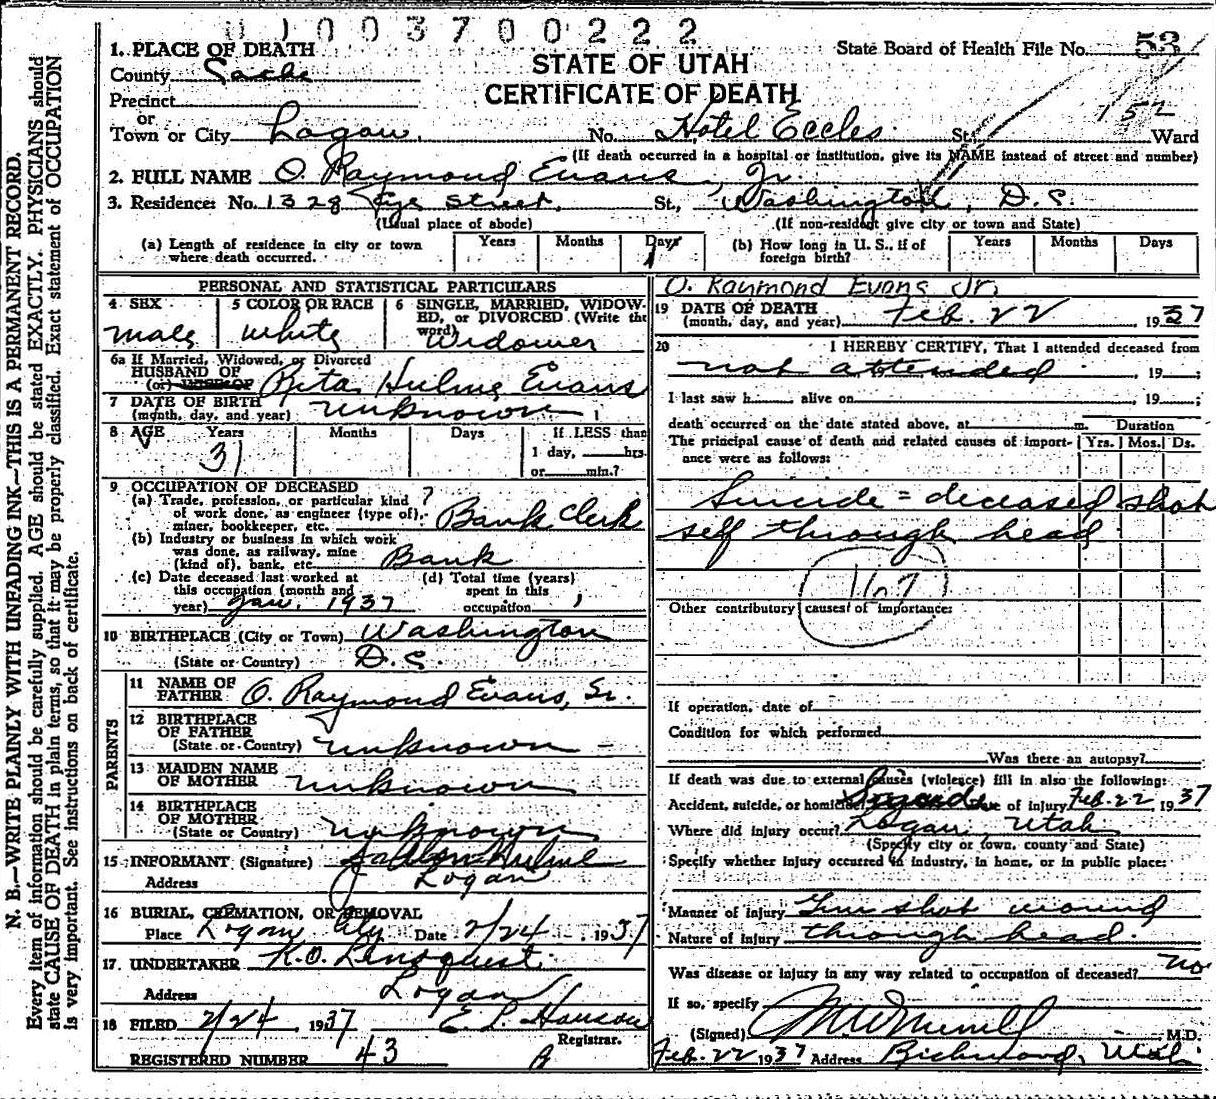 0100370222
1. PLACE OF DEATH
State Board of Health File No. 53
County Cache
STATE OF UTAH
CERTIFICATE OF DEATH
Precinct
or
152
Town or City Logan, No. Hotel Eccles St. Ward
(If death occurred in a hospital or institution, give its NAME instead of street and number)
2. FULL NAME O. Raymond Evans, Jr.
3. Residence: No. 1328 Eye Street, St., Washington, D.C.
(Usual place of abode) (If non-resident give city or town and State)
(a) Length of residence in city or town where death occurred. Years Months Days 1
(b) How long in U. S., if of foreign birth? Years Months Days
PERSONAL AND STATISTICAL PARTICULARS
4 SEX male
5 COLOR OR RACE white
6 SINGLE, MARRIED, WIDOWED, or DIVORCED (Write the word) Widower
6a If Married, Widowed, or Divorced
HUSBAND OF
(or) WIFE OF Rita Hulme Evans
7 DATE OF BIRTH
(month, day, and year) unknown
8 AGE Years Months Days If LESS than
31 1 day, hrs.
or min.?
9 OCCUPATION OF DECEASED
(a) Trade, profession, or particular kind ?
of work done, as engineer (type of),
miner, bookkeeper, etc. Bank Clerk
(b) Industry or business in which work
was done, as railway, mine
(kind of), bank, etc. Bank
(c) Date deceased last worked at
this occupation (month and
year) Jan. 1937
(d) Total time (years)
spent in this
occupation
10 BIRTHPLACE (City or Town) Washington
(State or Country) D.C.
PARENTS
11 NAME OF
FATHER O. Raymond Evans, Sr.
12 BIRTHPLACE
OF FATHER
(State or Country) unknown
13 MAIDEN NAME
OF MOTHER unknown
14 BIRTHPLACE
OF MOTHER
(State or Country) unknown
15 INFORMANT (Signature) Hulme
Address Logan
16 BURIAL, CREMATION, OR REMOVAL
Place Logan City Date 2/24 1937
17. UNDERTAKER K.O. Lindquist
Address Logan
18 FILED 2/24, 1937 E. L. Hanson
Registrar.
REGISTERED NUMBER 43
O. Raymond Evans Jr.
19 DATE OF DEATH
(month, day, and year) Feb. 22 1937
20 I HEREBY CERTIFY, That I attended deceased from
not attended, 19 ;
I last saw h alive on , 19 ;
death occurred on the date stated above, at m. Duration
The principal cause of death and related causes of importance were as follows: Yrs. Mos. Ds.
Suicide = deceased shot
self through head
167
Other contributory causes of importance:
If operation, date of
Condition for which performed
Was there an autopsy?
If death was due to external causes (violence) fill in also the following:
Accident, suicide, or homicide Suicide Date of injury Feb. 22, 1937
Where did injury occur? Logan, Utah
(Specify city or town, county and State)
Specify whether injury occurred in industry, in home, or in public place:
Manner of injury Gun shot wound
Nature of injury through head.
Was disease or injury in any way related to occupation of deceased? no
If so, specify
(Signed) M.D.
Feb. 22 1937 Address Richmond, Utah
N. B.—WRITE PLAINLY WITH UNFADING INK—THIS IS A PERMANENT RECORD.
Every item of information should be carefully supplied. AGE should be stated EXACTLY. PHYSICIANS should
state CAUSE OF DEATH in plain terms, so that it may be properly classified. Exact statement of OCCUPATION
is very important. See instructions on back of certificate.